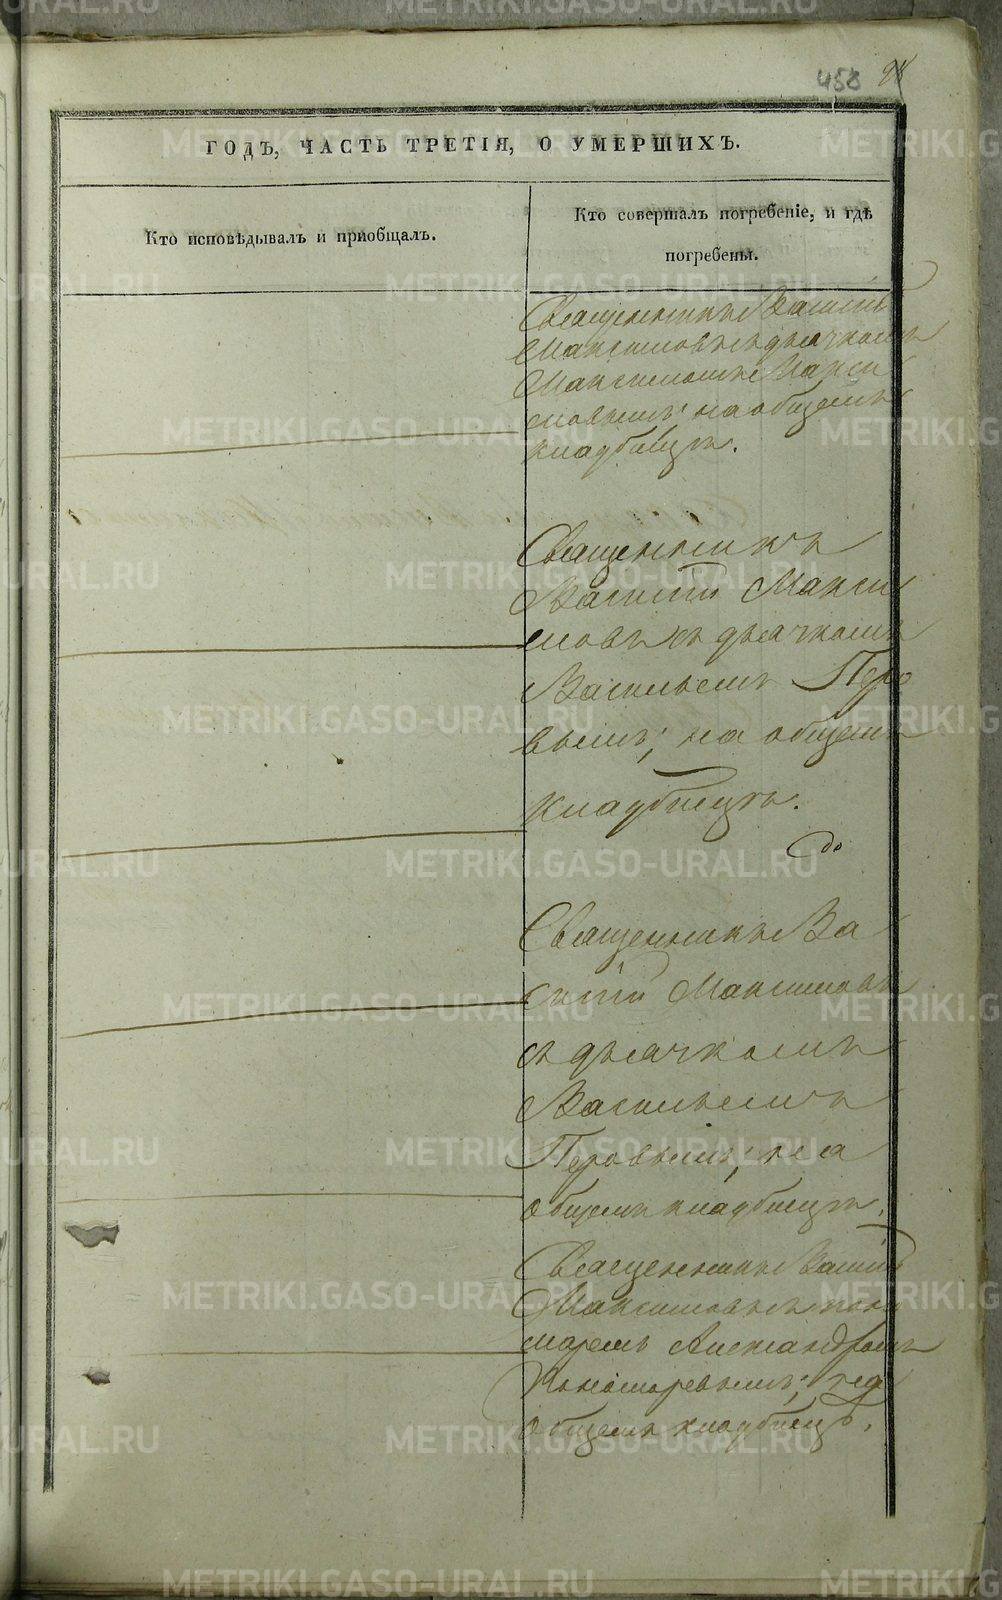 458
ГОДЪ, ЧАСТЬ ТРЕТІЯ, О УМЕРШИХЪ.
Кто исповѣдывалъ и пріобщалъ.
Кто совершалъ погребеніе, и гдѣ
погребены.
Священникъ Василій
Максимовъ съ дьячкомъ
Максимомъ Макси
мовымъ; на общемъ
кладбищѣ.
Священникъ
Василій Макси
мовъ съ дьячкомъ
Васильемъ Перо
вымъ; на общемъ
кладбищѣ.
Священникъ Ва
силій Максимовъ
съ дьячкомъ
Васильемъ
Перовымъ; на
общемъ кладбищѣ.
Священникъ Василій
Максимовъ съ поно
маремъ Александромъ
на
общемъ кладбищѣ.
METRIKI.GASO-URAL.RU